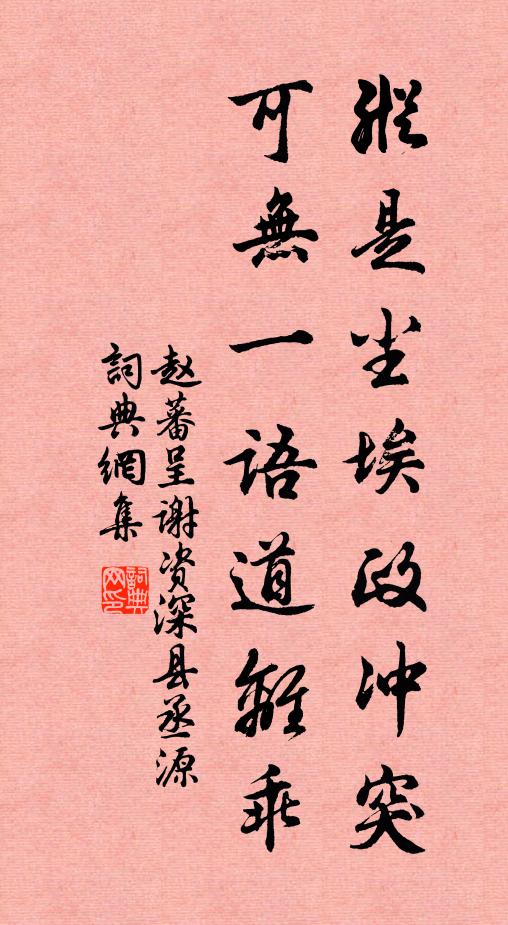 縱是尘埃政冲突
可無一语道離乖
赵蕃呈谢资深县丞源
詞典網集
詞典网印